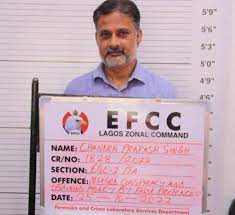 5'9"
5'6"
5'3"
EFCC
EFCC
LAGOS ZONAL COMMAND
NAME: CHANDRA PRAKASH SINGH
CR/NO: 1828/2022
SECTION:
OFFENCE: CONSPIRACY AND
OBTAINING MONEY BY FALSE PRETENCE
DATE: 25-10-2022
Forensics and Crime Laboratory Services Department